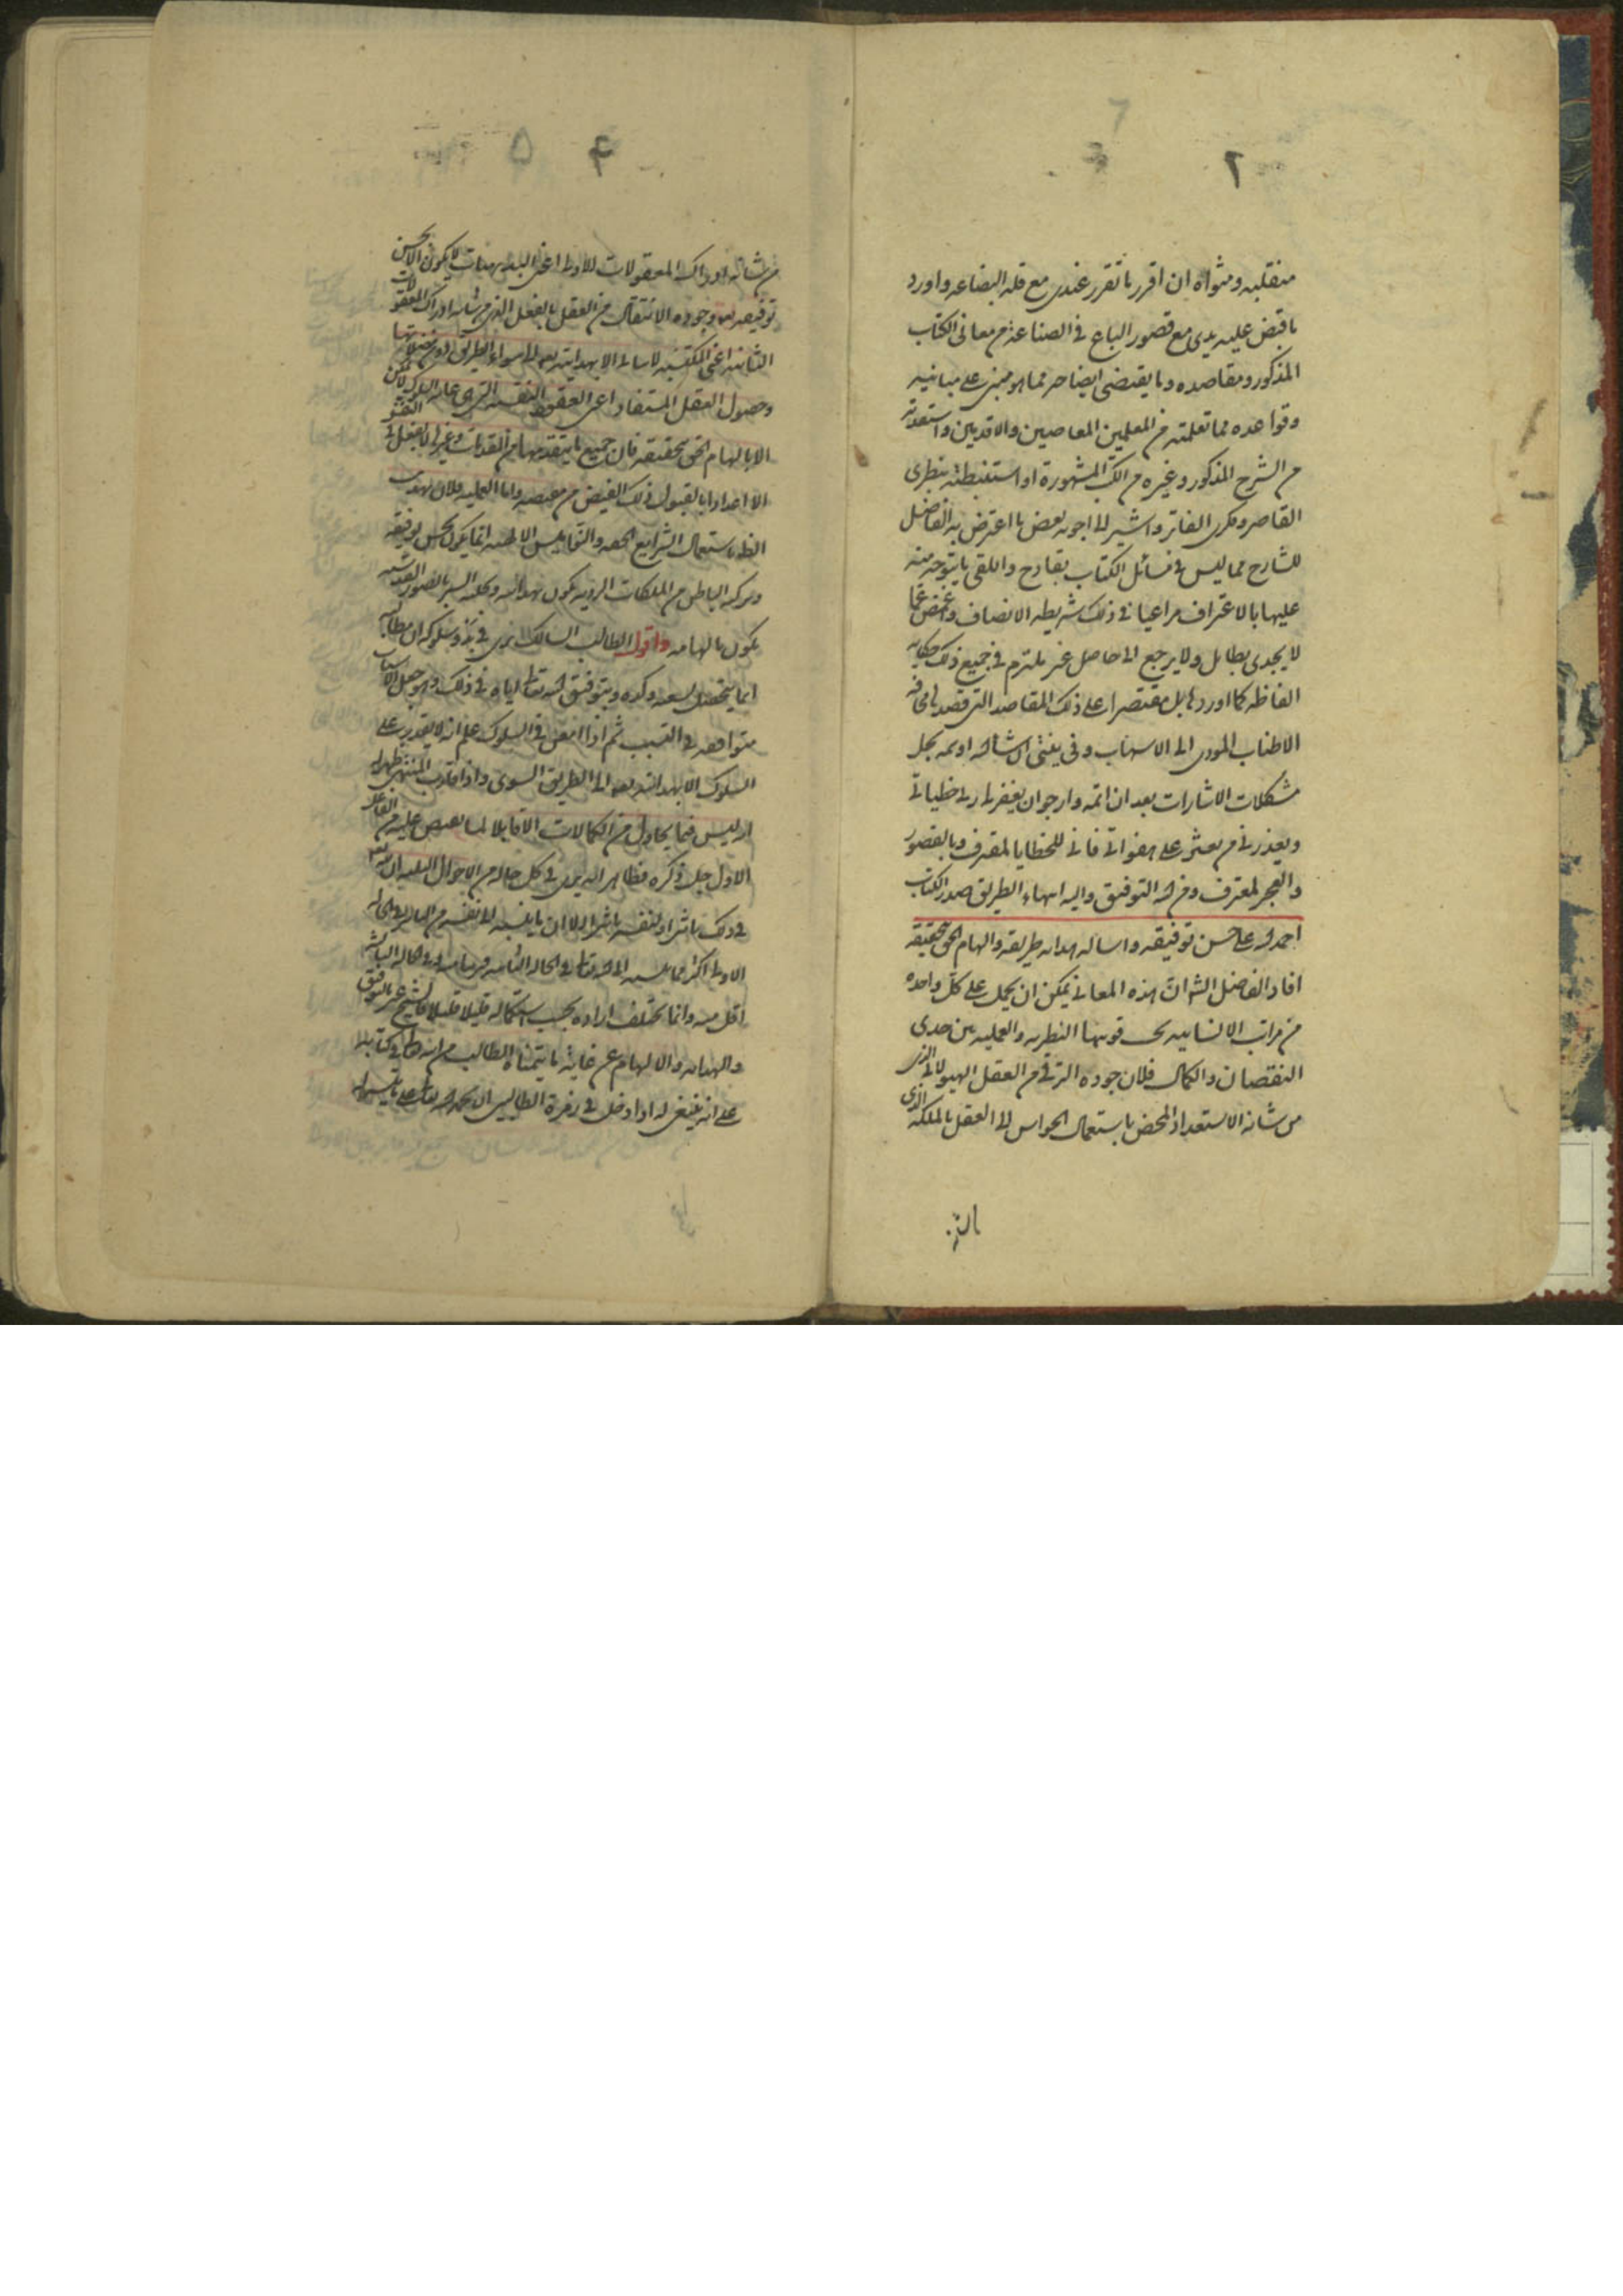 ٢
منقلبه ومثواه ان اقرر ما تقرر عندى مع قلة البضاعه واورد
ما قبض عليه يدى مع قصور الباع فى الصناعة من معانى الكتاب
المذكور ومقاصده وما يقتضى ايضاحه مما هو مبنى على مبانيه
وقواعده مما تعلمته من المعلمين المعاصرين والاقدمين واستفدته
من الشرح المذكور وغيره من الكتب المشهورة او استنبطته بنظرى
القاصر وفكرى الفاتر واشير الى اجوبه بعض ما اعترض به الفاضل
الشارح مما ليس فى مسائل الكتاب بقادح واتلقى ما يتوجه منه
عليها بالاعتراف مراعيا فى ذلك شريطه الانصاف واغمض عما
لا يجدى بطايل ولا يرجع الى حاصل غير ملتزم فى جميع ذلك حكايه
الفاظه كما اوردها بل مقتصرا على ذكر المقاصد التى قصدها مخافه
الاطناب المودى الى الاسهاب وفى نيتى ان شاء الله اوسمه بحل
مشكلات الاشارات بعد ان اتمه وارجو ان يغفر لى ربى خطيئاتى
ويعذرنى من يعثر على هفواتى فانى للخطايا لمقترف وبالقصور
والعجز لمعترف ومن الله التوفيق واليه انتهاء الطريق صدر الكتاب
احمد الله على حسن توفيقه واساله هدايه طريقه والهام الحق بتحقيقه
افاد الفاضل الشارح ان هذه المعانى يمكن ان يحمل على كل واحده
من مراتب الانسانيه بحسب قوتيها النظريه والعمليه بين حدى
النقصان والكمال فلان جوده الترقى من العقل الهيولانى الذى
من شانه الاستعداد المحض باستعمال الحواس الى العقل بالملكه الذى
۴ ۵
من شانه ادراك المعقولات الاولى اعنى البديهيات لا يكون الا بحسن
توفيقه تعالى وجوده الانتقال من العقل بالفعل الذى من شانه ادراك المعقولات
الثانيه اعنى المكتسبه لا يتاتى الا بهدايته تعالى الى سواء الطريق دون مضلاتها
وحصول العقل المستفاد اعنى العقود اليقينيه التى هى غايه السلوك لا يمكن
الا بالهام الحق بتحقيقه فان جميع ما يتقدمها من المقدمات وغيرها لا يفعل فى النفس
الا اعدادا ما لقبول ذلك الفيض من مفيضه واما العمليه فلان تهذيب
الظاهر باستعمال الشرايع الحقه والنواميس الالهيه انما يكون بحسن توفيقه
وتزكيه الباطن من الملكات الرديه يكون بهدايته وتحليه السر بالصور القدسيه
يكون بالهامه واقول الطالب السالك يرى فى بدو سلوكه ان مطالبه
انما يتحصل بسعيه وكده وبتوفيق الله تعالى اياه فى ذلك وهو جعل الاسباب
متوافقه فى التسبب ثم اذا امعن فى السلوك علم انه لا يقدر على
السلوك الا بهدايته تعالى الى الطريق السوى واذا قارب المنتهى ظهر له
انه ليس فيما يحاول من الكمالات الا قابلا لما يفيض عليه من الفاعل
الاول جل ذكره فظاهر انه يرى فى كل حال من الاحوال الثلثه ان لله
فى ذلك تاثيرا ولنفسه تاثيرا الا ان ما ينسبه الى نفسه من التاثير فى الحاله
الاولى اكثر مما ينسبه الى الله تعالى وفى الحاله الثانيه قريبا منه وفى الحاله الثالثه
اقل منه وانما تختلف اراءه بحسب استكماله قليلا قليلا فالشيخ عبر بالتوفيق
والهدايه والالهام عن غايه ما يتمناه الطالب من الله تعالى فى كتابه
على انه ينبغى له اذا دخل فى زمرة الطالبين ان يحمد الله تعالى على ما يتيسر له